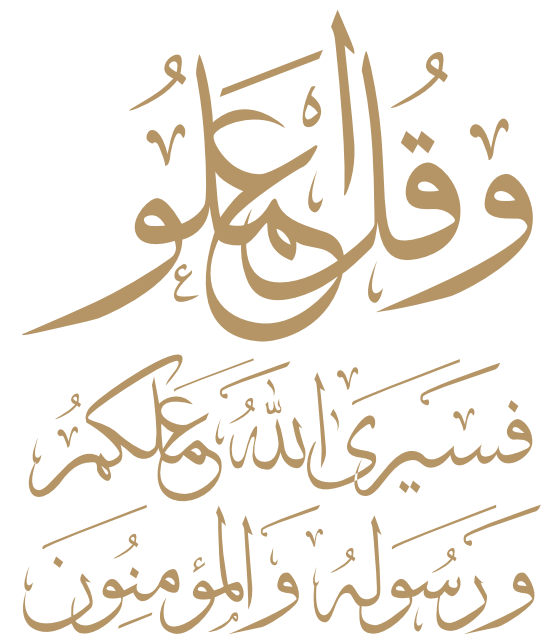 وَقُلِ اعْمَلُو
فَسَيَرَى اللَّهُ عَمَلَكُمْ
وَرَسُولُهُ وَالْمُؤْمِنُونَ